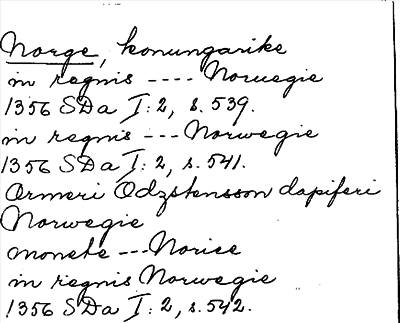 Norge, konungarike
in regnis ---- Noruegie
1356 SDa I: 2, s. 539.
in regnis --- Norwegie
1356 SDa I: 2, s. 541.
Ormeri Odzstensson dapiferi
Norwegie
monete --- Norice
in regnis Norwegie
1356 SDa I: 2, s. 542.